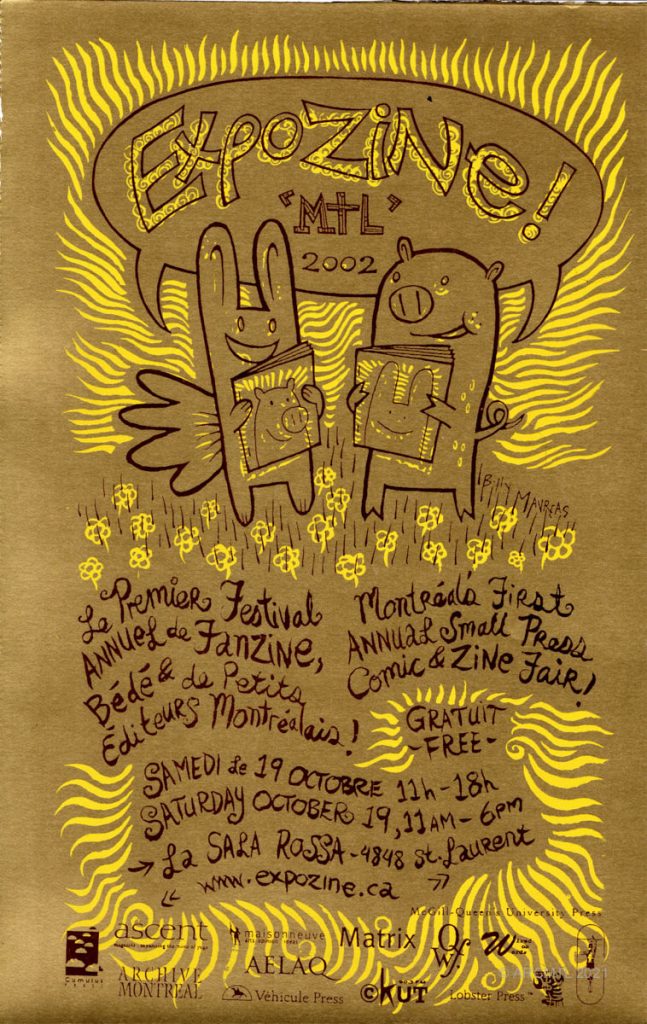 EXPOZINE!
"MTL"
2002
Billy MAVREAS
Le Premier Festival
ANNUEL de Fanzine,
Bédé & de Petits
Éditeurs Montréalais!
Montréal's First
ANNUAL Small Press
Comic & Zine Fair!
GRATUIT
-FREE-
SAMEDI le 19 OCTOBRE 11h-18h
SATURDAY OCTOBER 19, 11AM-6PM
→ La SALA ROSSA-4848 St. Laurent
www.expozine.ca
McGill-Queen's University Press
Cumulus
ascent
maisonneuve
arts opinion ideas
Matrix
QWF
Word
ARCHIVE
MONTREAL
AELAQ
Véhicule Press
CKUT
Lobster Press™
2021